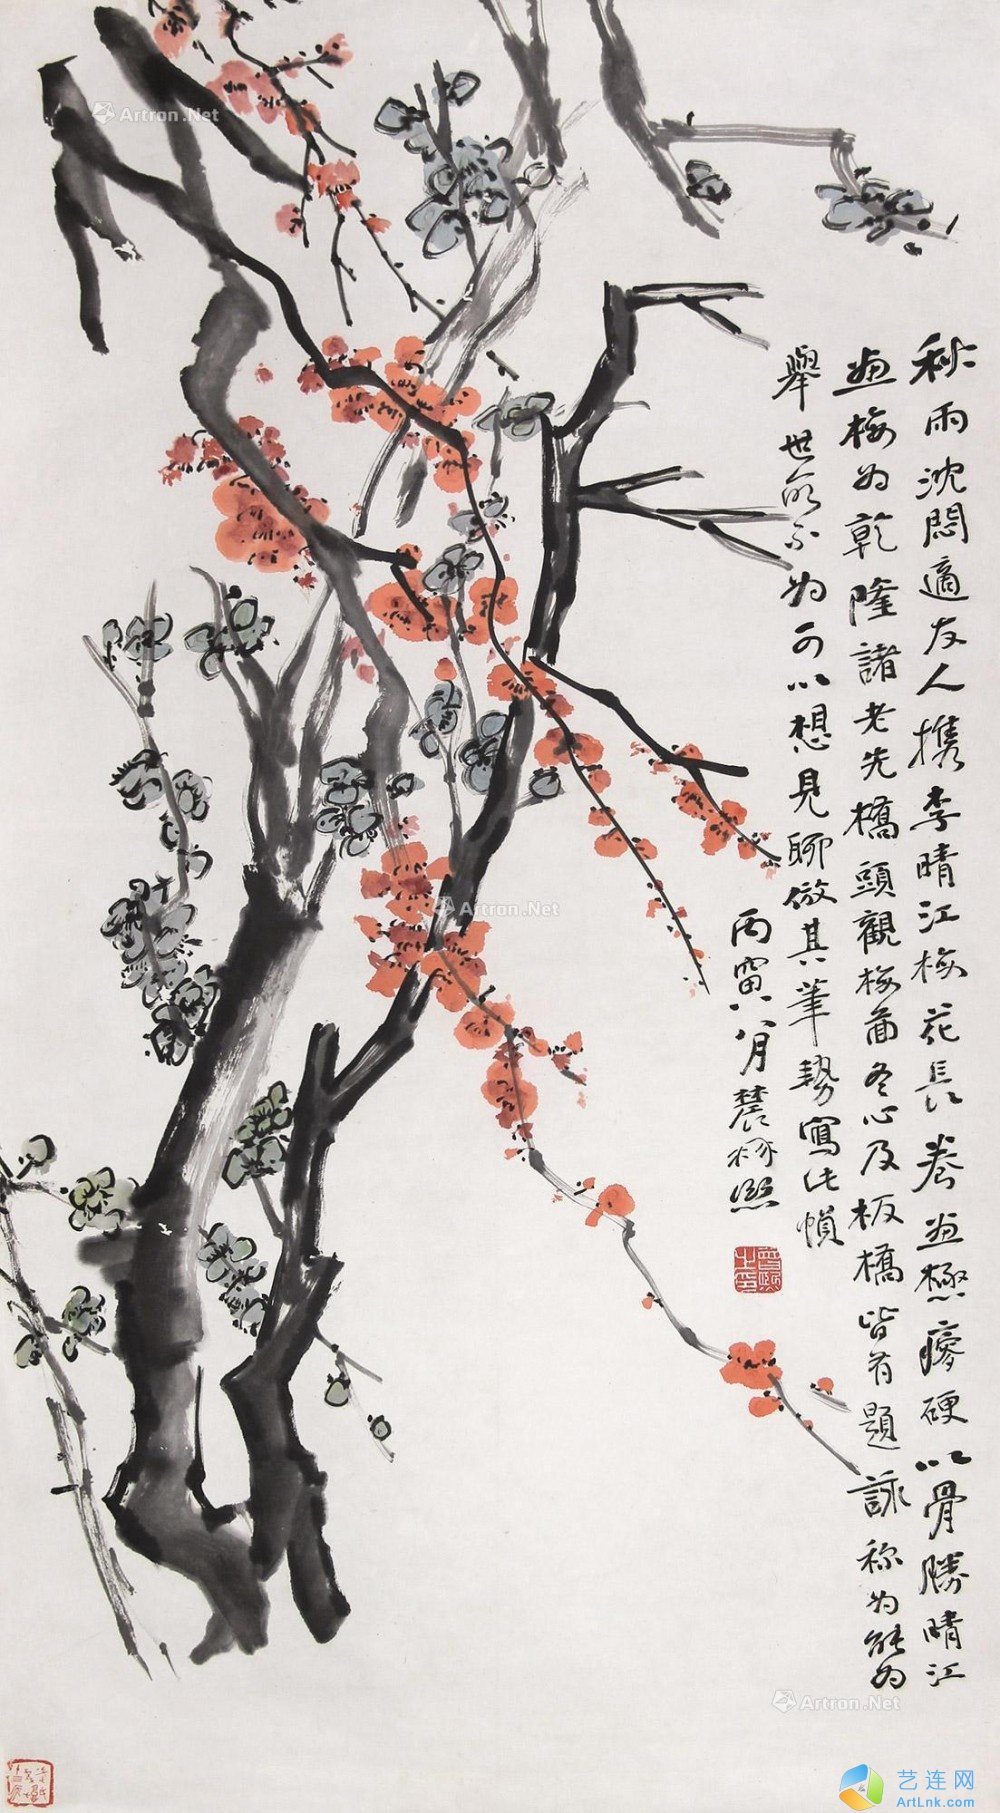 秋雨沈悶適友人攜李晴江梅花長卷畫極瘦硬以骨勝晴江
畫梅為乾隆諸老先橋頭觀梅圖冬心及板橋皆有題詠称為能為
舉世所不為可以想見聊倣其筆勢寫此幀
丙寅八月農
Artron.Net
Artron.Net
Artron.Net
Artron.Net
艺连网
ArtLnk.com